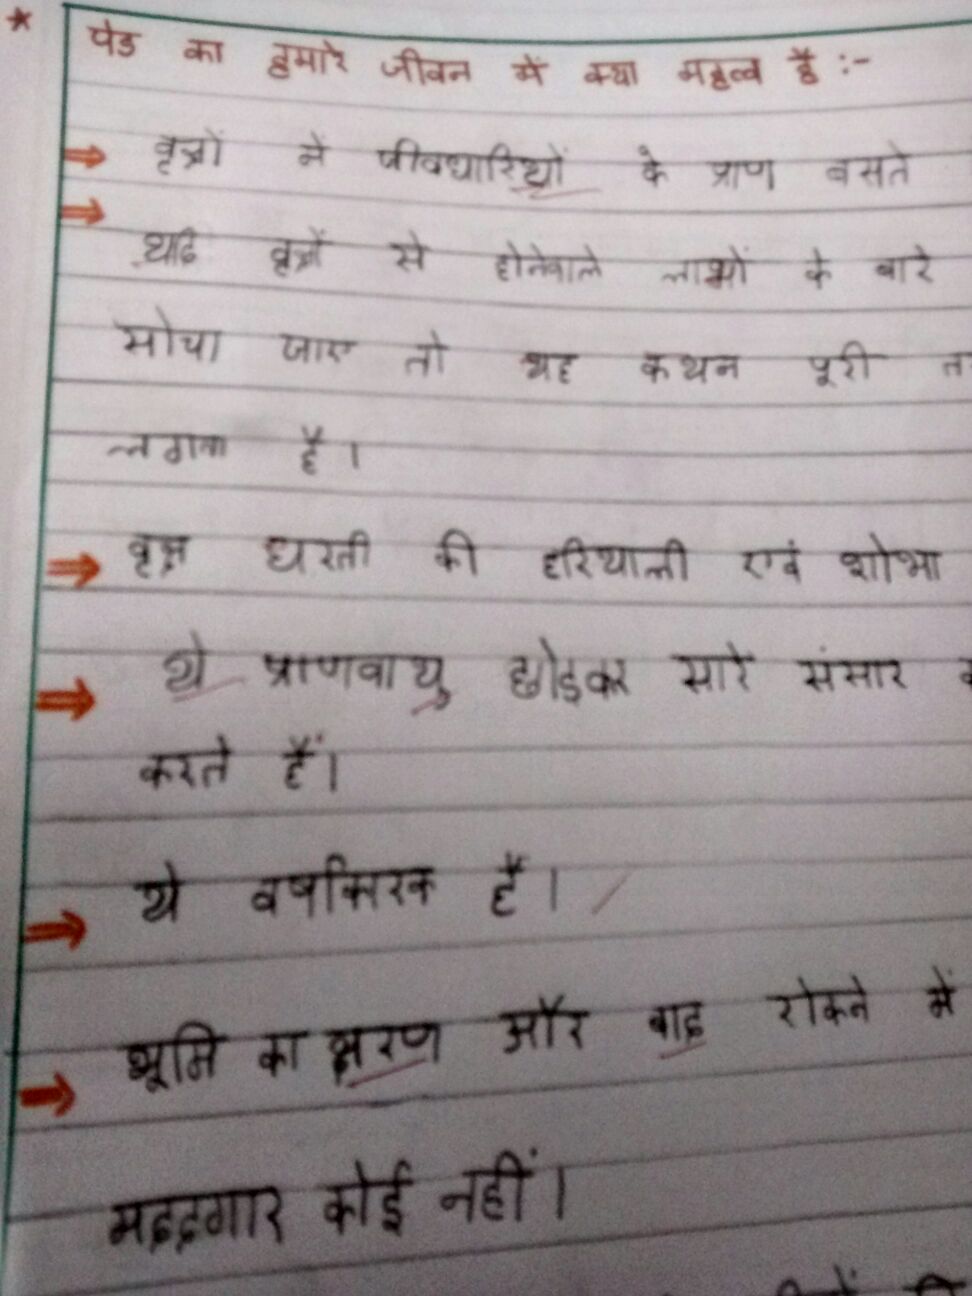 पेड का हमारे जीवन में क्या महत्व है :-
वृक्षों में जीवधारियों के प्राण बसते
यदि वृक्षों से होनेवाले लाभों के बारे
सोचा जाए तो यह कथन पूरी
लगता है।
वृक्ष धरती की हरियाली एवं शोभा
ये प्राणवायु छोड़कर सारे संसार
करते हैं।
ये वर्षाकारक हैं।
भूमि का क्षरण और बाढ़ रोकने में
मददगार कोई नहीं।